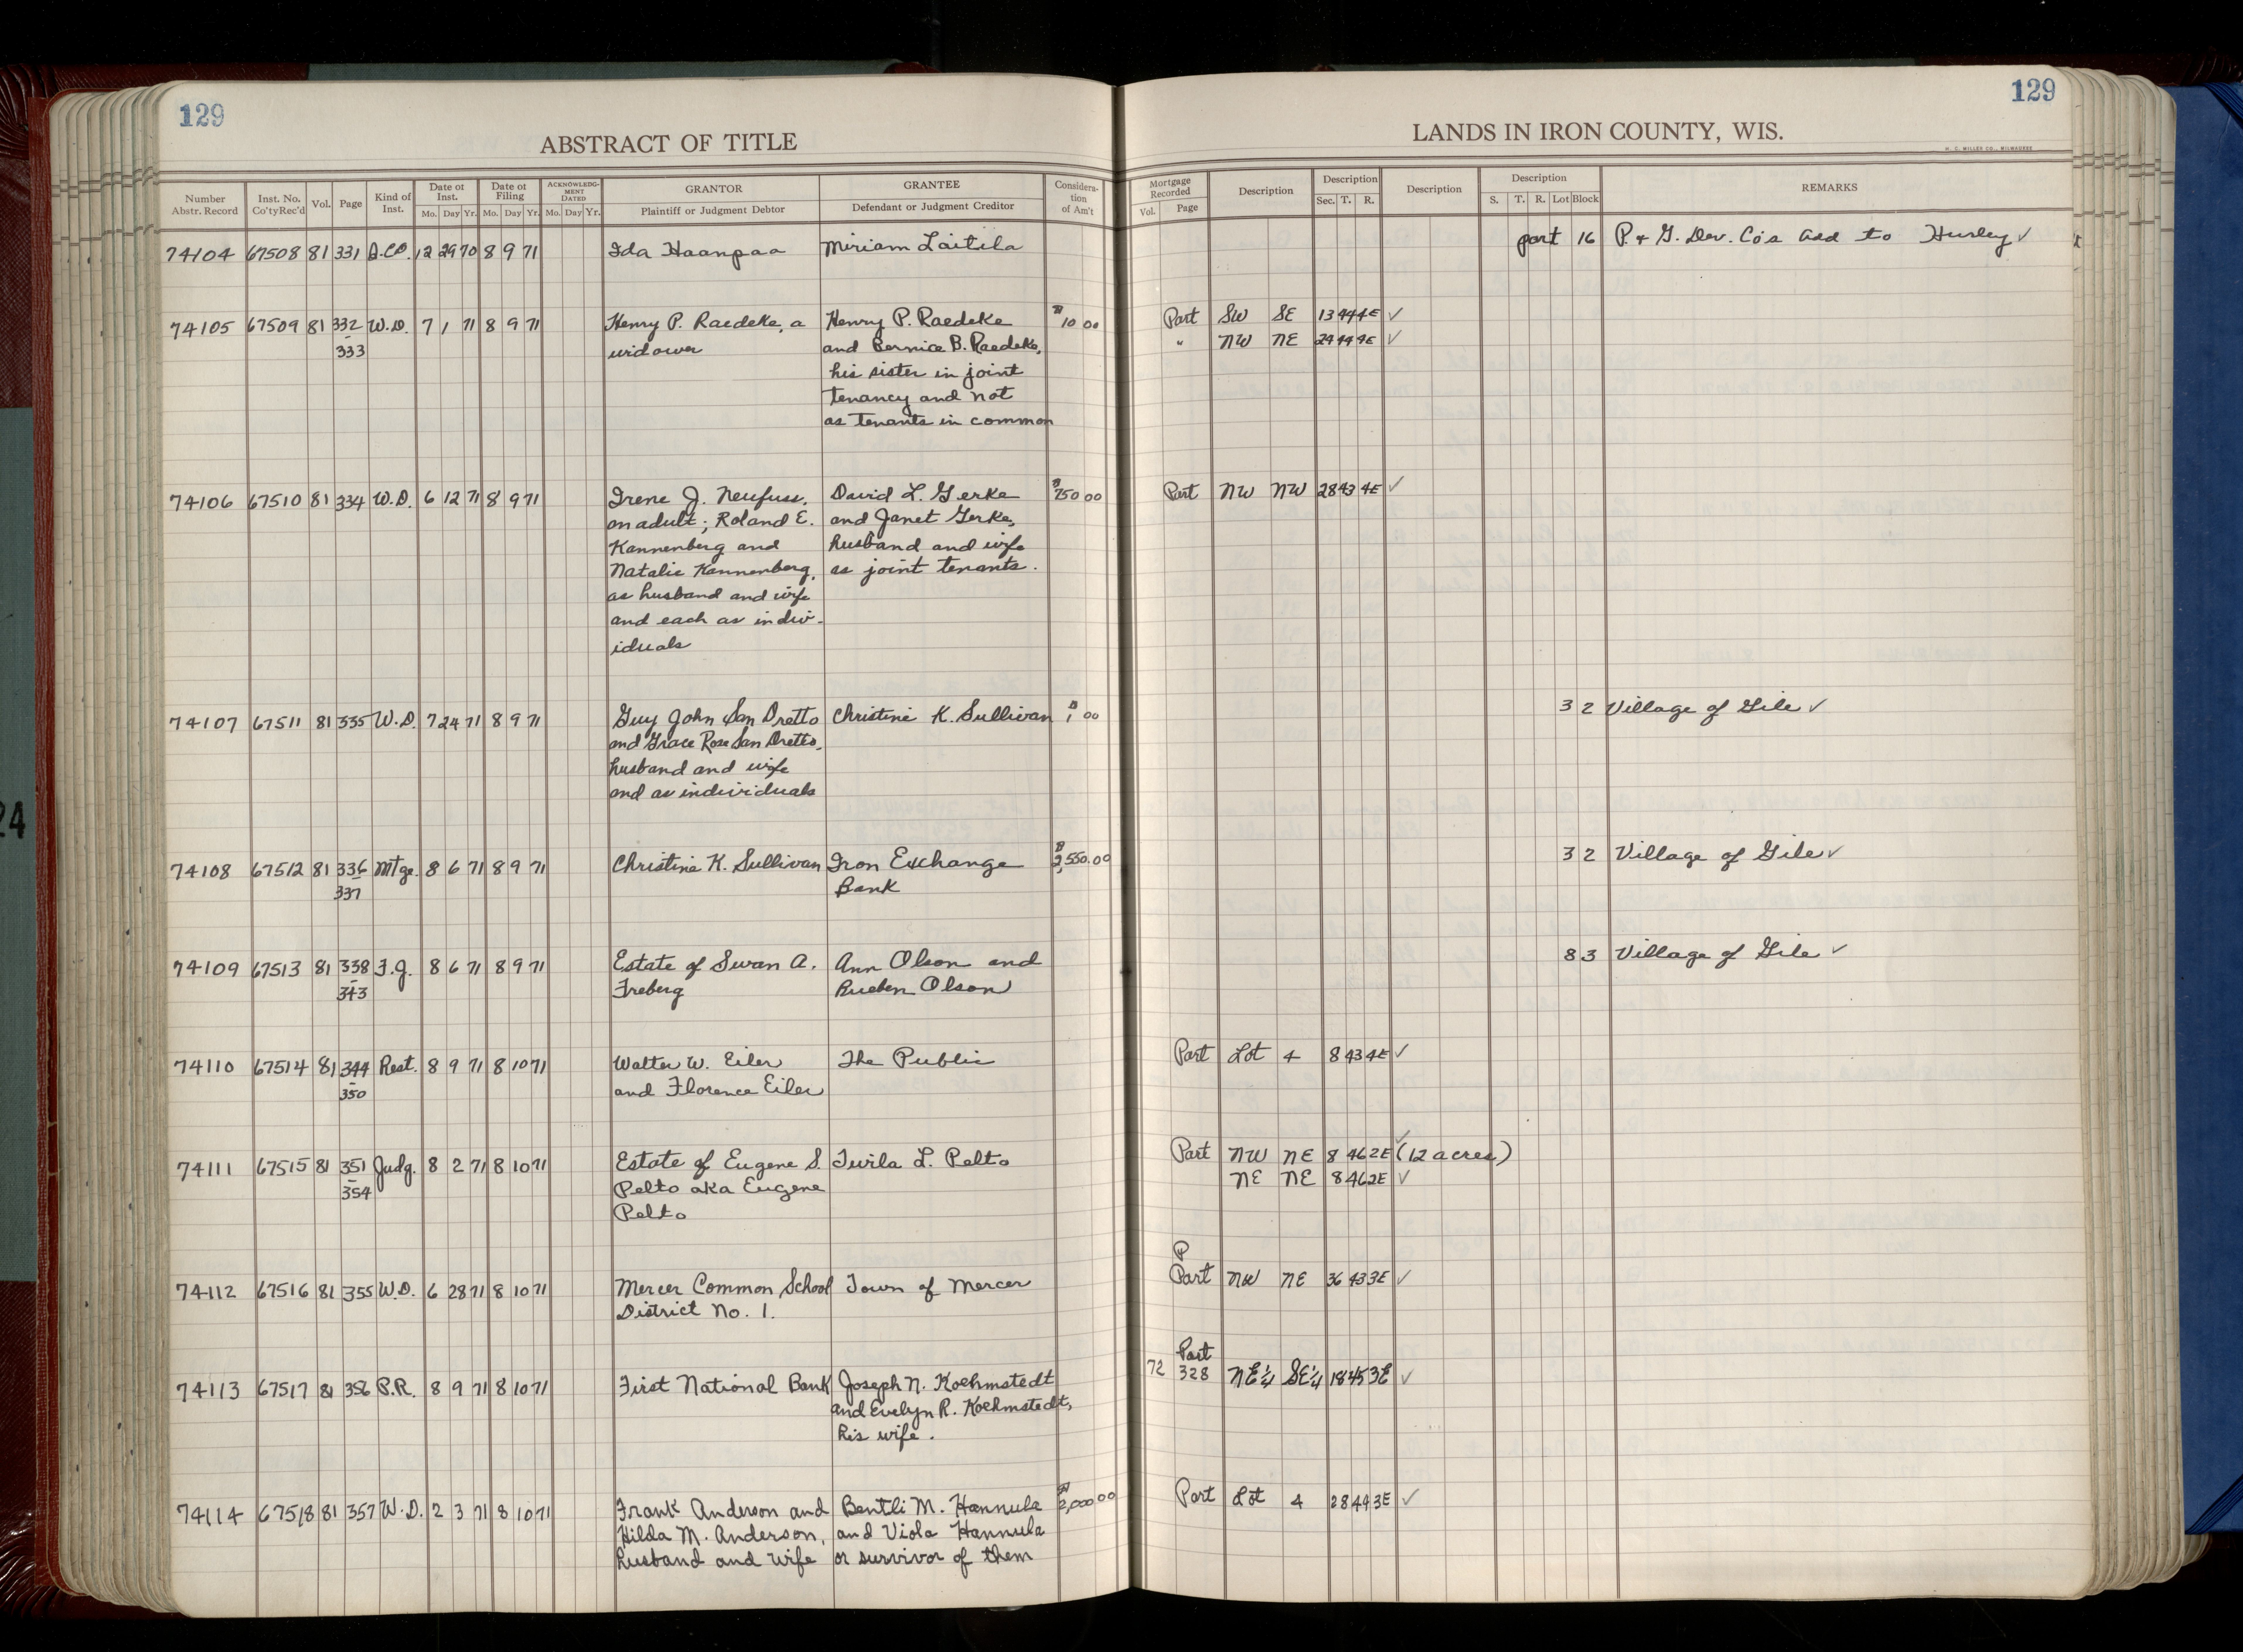 129
129
ABSTRACT OF TITLE
LANDS IN IRON COUNTY, WIS.
H. C. MILLER CO., MILWAUKEE
Number Abstr. Record Inst. No. Co'ty Rec'd Vol. Page Kind of Inst. Date of Inst. Mo. Day Yr. Date of Filing Mo. Day Yr. ACKNOWLEDGMENT DATED Mo. Day Yr. GRANTOR Plaintiff or Judgment Debtor GRANTEE Defendant or Judgment Creditor Consideration of Am't
Mortgage Recorded Vol. Page Description Description Sec. T. R. Description Description S. T. R. Lot Block REMARKS
74104 67508 81 331 12 29 70 8 9 71 Ida Haanpaa Miriam Laitila part 16 P. & G. Dev. Co's Add to Hurley ✓
74105 67509 81 332 W.D. 7 1 71 8 9 71 Henry P. Raedeke, a Henry P. Raedeke $10 00 Part SW SE 13 44 4E ✓
333 widower and Bernice B. Raedeke, " NW NE 24 44 4E ✓
his sister in joint
tenancy and not
as tenants in common
74106 67510 81 334 W.D. 6 12 71 8 9 71 Irene J. Neufuss, David L. Gerke $750 00 Part NW NW 28 43 4E ✓
an adult; Roland E. and Janet Gerke,
Kannenberg and husband and wife
Natalie Kannenberg, as joint tenants.
as husband and wife
and each as indiv-
iduals
74107 67511 81 335 W.D. 7 24 71 8 9 71 Guy John San Dretto Christine K. Sullivan $1 00 3 2 Village of Gile ✓
and Grace Rose San Dretto,
husband and wife
and as individuals
74108 67512 81 336 Mtge. 8 6 71 8 9 71 Christine K. Sullivan Iron Exchange $2,550.00 3 2 Village of Gile ✓
337 Bank
74109 67513 81 338 F.J. 8 6 71 8 9 71 Estate of Swan A. Ann Olson and 8 3 Village of Gile ✓
343 Freberg Rueben Olson
74110 67514 81 344 Rest. 8 9 71 8 10 71 Walter W. Eiler The Public Part Lot 4 8 43 4E ✓
350 and Florence Eiler
74111 67515 81 351 Judg. 8 2 71 8 10 71 Estate of Eugene S. Twila L. Pelto Part NW NE 8 46 2E ✓ (12 acres)
354 Pelto aka Eugene NE NE 8 46 2E ✓
Pelto
P
74112 67516 81 355 W.D. 6 28 71 8 10 71 Mercer Common School Town of Mercer Part NW NE 36 43 3E ✓
District No. 1.
Part
74113 67517 81 356 P.R. 8 9 71 8 10 71 First National Bank Joseph N. Koehmstedt 72 328 NE¼ SE¼ 18 45 3E ✓
and Evelyn R. Koehmstedt,
his wife.
74114 67518 81 357 W.D. 2 3 71 8 10 71 Frank Anderson and Bentli M. Hannula $2,000 00 Part Lot 4 28 44 3E ✓
Hilda M. Anderson, and Viola Hannula
husband and wife or survivor of them
24